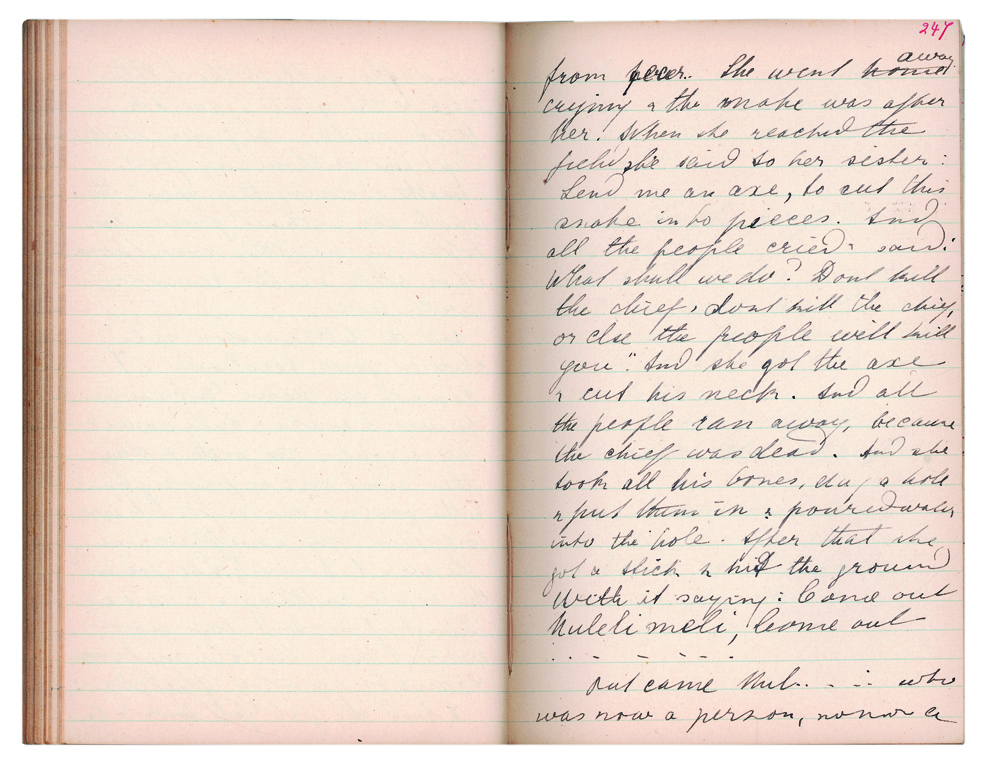 247
from fever. She went home away
crying & the snake was after
her. When she reached the
field she said to her sister:
Lend me an axe, to cut this
snake into pieces. And
all the people cried & said:
What shall we do? Dont kill
the chief, dont kill the chief,
or else the people will kill
you". And she got the axe
& cut his neck. And all
the people ran away, because
the chief was dead. And she
took all his bones, dug a hole
& put them in & poured water
into the hole. After that she
got a stick & hit the ground
with it saying: Come out
meli, Come out
. . . - - - - -
Out came . . - - : who
was now a person, a